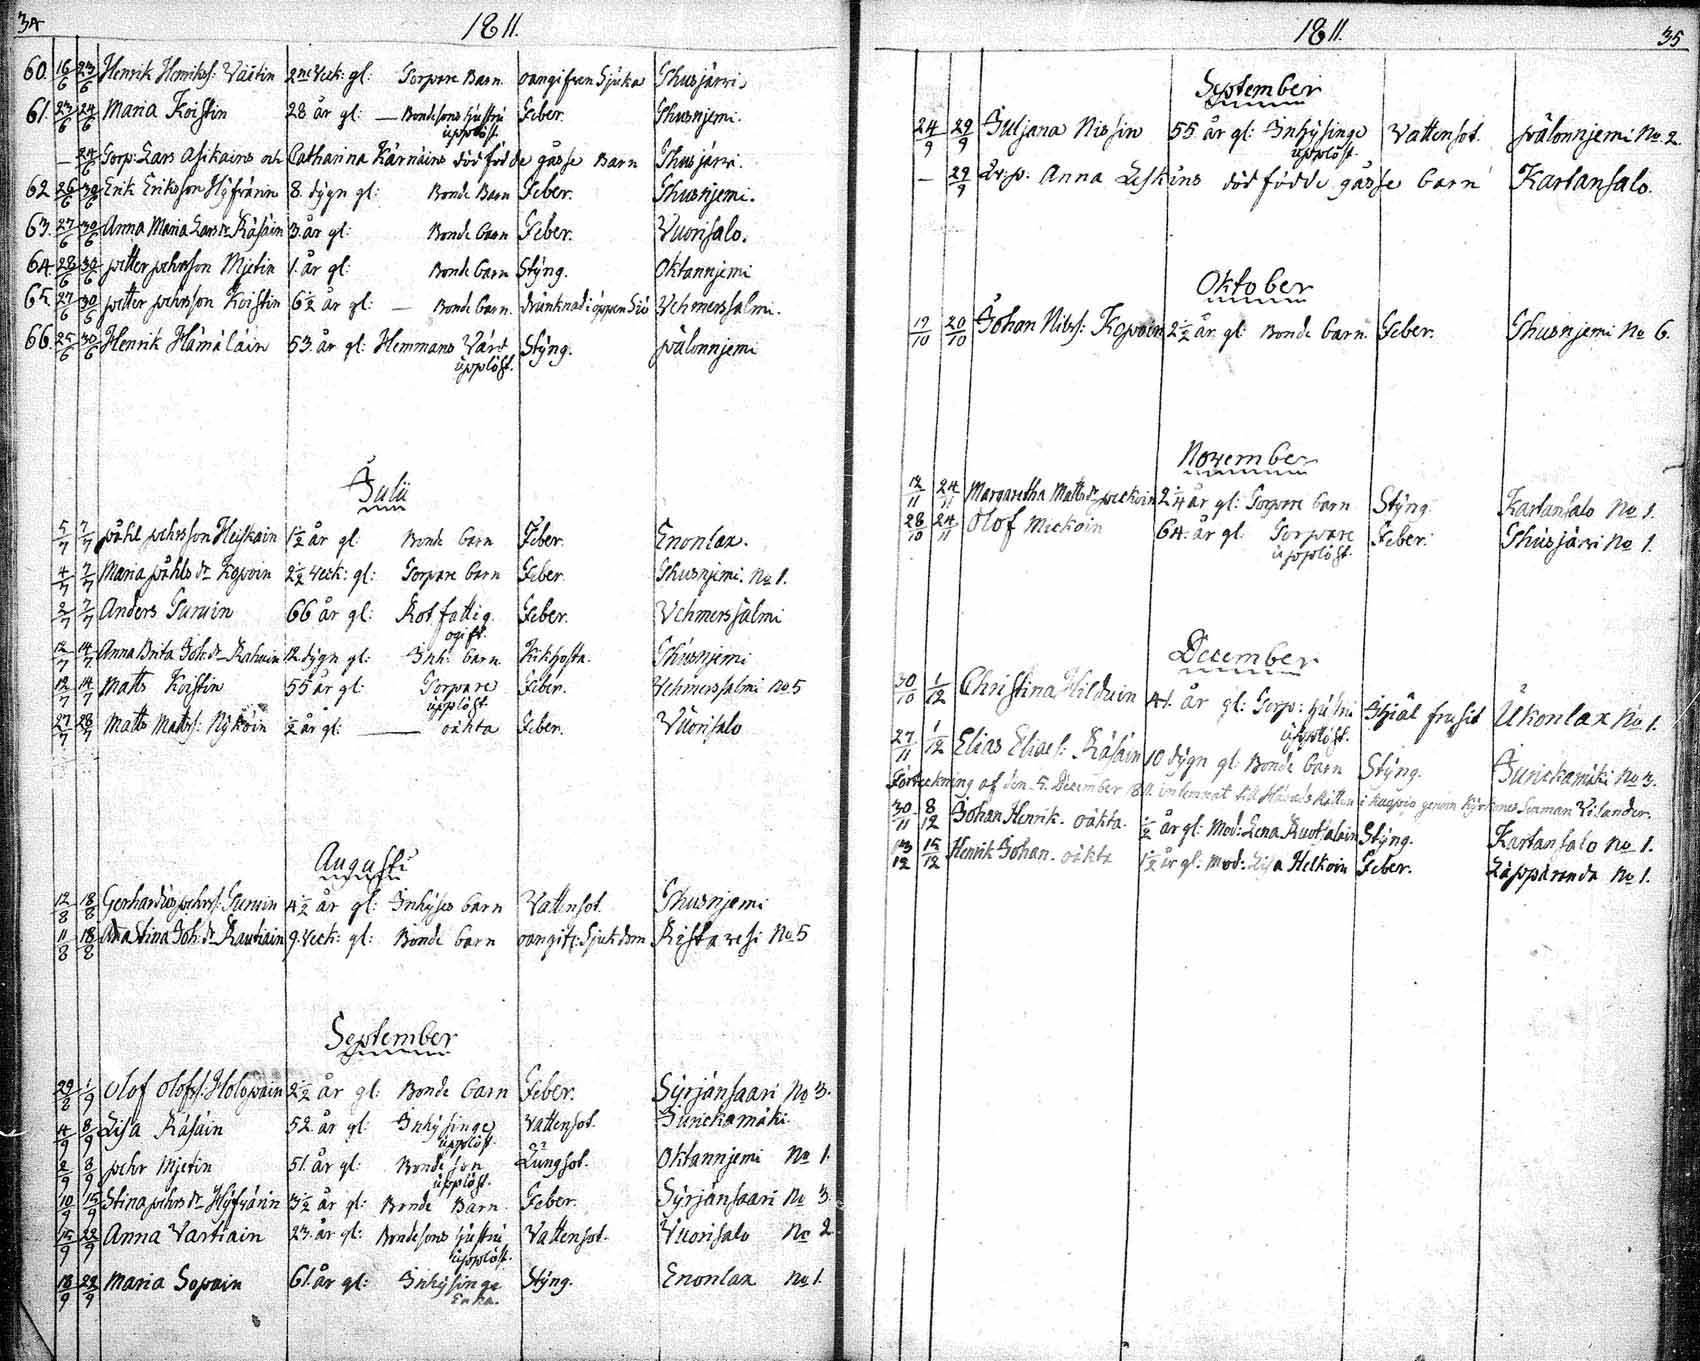 34
1811.
60. 16/6 23/6 Henrik Henrikss: Västin 2ne Veck: gl: Torpare Barn oangifven Sjuka Thusjärvi
61. 23/6 24/6 Maria Koistin 28 år gl: — Bondesons hustru Feber. Thusnjemi.
upplöst.
— 24/6 Torp: Lars Asikains och Catharina Kärnäins död född gåsse Barn Thusjärvi.
62 26/6 30/6 Erik Eriksson Hyfvärin 8. dygn gl: Bonde Barn Feber. Thusnjemi.
63. 27/6 30/6 Anna Maria Lars dr Räsäin 3 år gl: Bonde barn Feber. Vuorisalo.
64. 28/6 30/6 petter pehrsson Mjetin 1. år gl: Bonde barn Styng. Oktannjemi
65. 27/6 30/6 petter pehrsson Koistin 6½ år gl: — Bonde barn. drunknad i öppen Siö Vehmerssalmi.
66. 25/6 30/6 Henrik Hämäläin 53. år gl: Hemmans Värd Styng. pälonnjemi
upplöst.
Julii
5/7 7/7 påhl pehrsson Heiskain 1½ år gl: Bonde barn Feber. Enonlax.
4/7 7/7 Maria påhls dr Kopoin 2½ Veck: gl: Torpare barn Feber. Thusnjemi. No 1.
2/7 7/7 Anders Turuin 66 år gl: Rot fattig. Feber. Vehmerssalmi
ogift.
12/7 14/7 Anna Brita Joh: dr Rahuin 12. dygn gl: Inh: barn Kikhosta. Thusnjemi
12/7 14/7 Matts Koistin 55 år gl: Torpare Feber. Vehmerssalmi No 5
upplöst.
27/7 28/7 Matts Mattss: Nykäin ½ år gl: — oächta Feber. Vuorisalo
Augusti
12/8 18/8 Gerhardus pehrss: Turuin 4½ år gl: Inhyses barn Vattensot. Thusnjemi
11/8 18/8 Stina Joh: dr Rautiain 9. Veck: gl: Bonde barn oangif: Sjukdom Ristavesi No 5
September
29/8 1/9 Olof Olofss: Holopain 2½ år gl: Bonde barn Feber. Syrjänsaari No 3.
4/9 8/9 Lisa Räsäin 52. år gl: Inhysinge Vattensot. Jurickamäki.
upplöst.
2/9 8/9 pehr Mjetin 51. år gl: Bonde son Lungsot. Oktannjemi No 1.
upplöst.
10/9 15/9 Stina pehrs dr Hyfvärin 3½ år gl: Bonde Barn. Feber. Syrjänsaari No 3
15/9 22/9 Anna Vartiain 23. år gl: Bondesons hustru Vattensot. Vuorisalo No 2
upplöst.
18/9 22/9 Maria Sopain 61. år gl: Inhysinge Styng. Enonlax No 1.
Enka.
1811.
35
September
24/9 29/9 Juljana Nissin 55. år gl: Inhysinge Vattensot. pälonnjemi No 2.
upplöst.
— 29/9 Anna Leskins död födde gåsse barn Kartansalo.
Oktober
19/10 20/10 Johan Nilss: Kopoin 2½ år gl: Bonde barn. Feber. Thusnjemi No 6.
November
12/11 24/11 Margaretha Matts dr peckoin 2¼ år gl: Torpare barn Styng. Kartansalo No 1.
28/10 24/11 Olof Mickoin 64. år gl: Torpare Feber. Thusjärvi No 1.
upplöst.
December
30/10 1/12 Christina Hilduin 41. år gl: Torp: hustru Ihjäl frusit Ukonlax No 1.
upplöst.
27/11 1/12 Elias Eliaes: Räsäin 10 dygn gl: Bonde barn Styng. Jurickamäki No 3.
Förteckning af den 5. December 1811. inlemnat till Härads Rätten i Kuopio genom Kyrkones Inaman Vilander.
30/11 8/12 Johan Henrik. oäkta. ½ år gl: Mod: Lena Ruotsalain Styng. Kartansalo No 1.
13/12 15/12 Henrik Johan. oäkta 1½ år gl: Mod: Lisa Helkoin Feber. Läppäranda No 1.